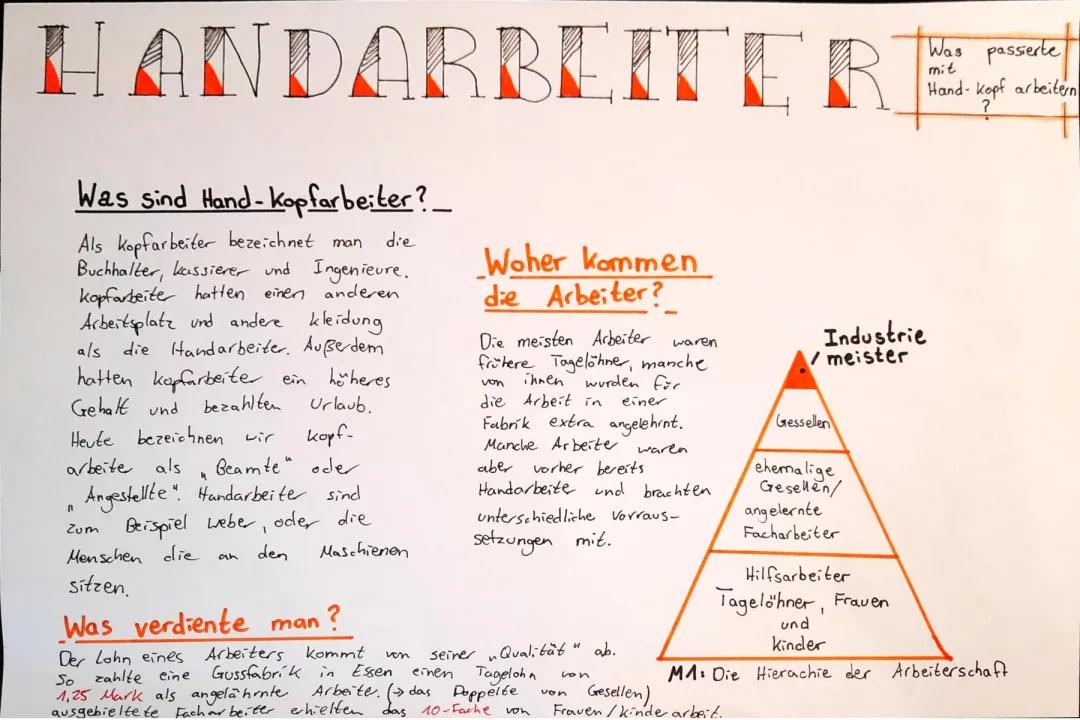 HANDARBEITER
Was passierte
mit
Hand-Kopf arbeitern
?
Was sind Hand-Kopfarbeiter?
Als Kopfarbeiter bezeichnet man die
Buchhalter, Kassierer und Ingenieure.
Kopfarbeiter hatten einen anderen
Arbeitsplatz und andere Kleidung
als die Handarbeiter. Außerdem
hatten Kopfarbeiter ein höheres
Gehalt und bezahlten Urlaub.
Heute bezeichnen wir Kopf-
arbeite als „Beamte“ oder
„Angestellte“. Handarbeiter sind
zum Beispiel Weber, oder die
Menschen die an den Maschienen
sitzen.
Woher kommen
die Arbeiter?
Die meisten Arbeiter waren
frühere Tagelöhner, manche
von ihnen wurden für
die Arbeit in einer
Fabrik extra angelehrnt.
Manche Arbeiter waren
aber vorher bereits
Handarbeite und brachten
unterschiedliche Vorraus-
setzungen mit.
Industrie
meister
Gessellen
ehemalige
Gesellen/
angelernte
Facharbeiter
Hilfsarbeiter
Tagelöhner, Frauen
und
Kinder
M1: Die Hierachie der Arbeiterschaft
Was verdiente man?
Der Lohn eines Arbeiters kommt von seiner „Qualität“ ab.
So zahlte eine Gussfabrik in Essen einen Tagelohn von
1,25 Mark als angelährnte Arbeite. (→ das Doppelte von Gesellen)
ausgebieltete Facharbeiter erhielten das 10-Fache von Frauen/kinderarbeit.